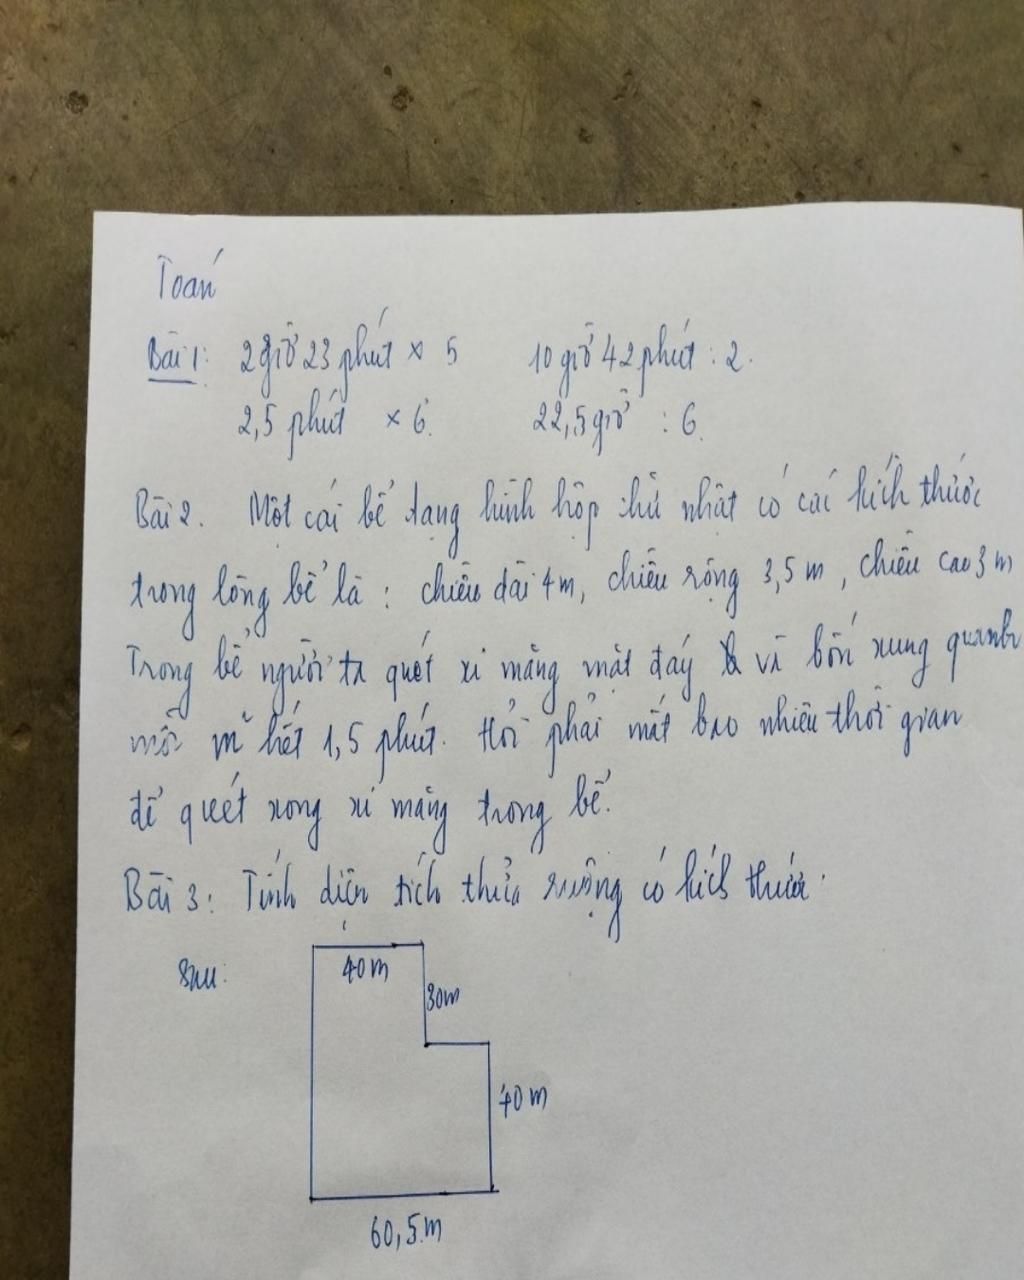 Toán
Bài 1: 2 giờ 23 phút x 5 10 giờ 42 phút : 2.
2,5 phút x 6. 22,5 giờ : 6.
Bài 2. Một cái bể dạng hình hộp chữ nhật có các kích thước
trong lòng bể là : chiều dài 4m, chiều rộng 3,5 m, chiều cao 3 m
Trong bể người ta quét xi măng mặt đáy và bốn xung quanh
mỗi m² hết 1,5 phút. Hỏi phải mất bao nhiêu thời gian
để quét xong xi măng trong bể.
Bài 3: Tính diện tích thửa ruộng có kích thước
sau:
40m
30m
40m
60,5m